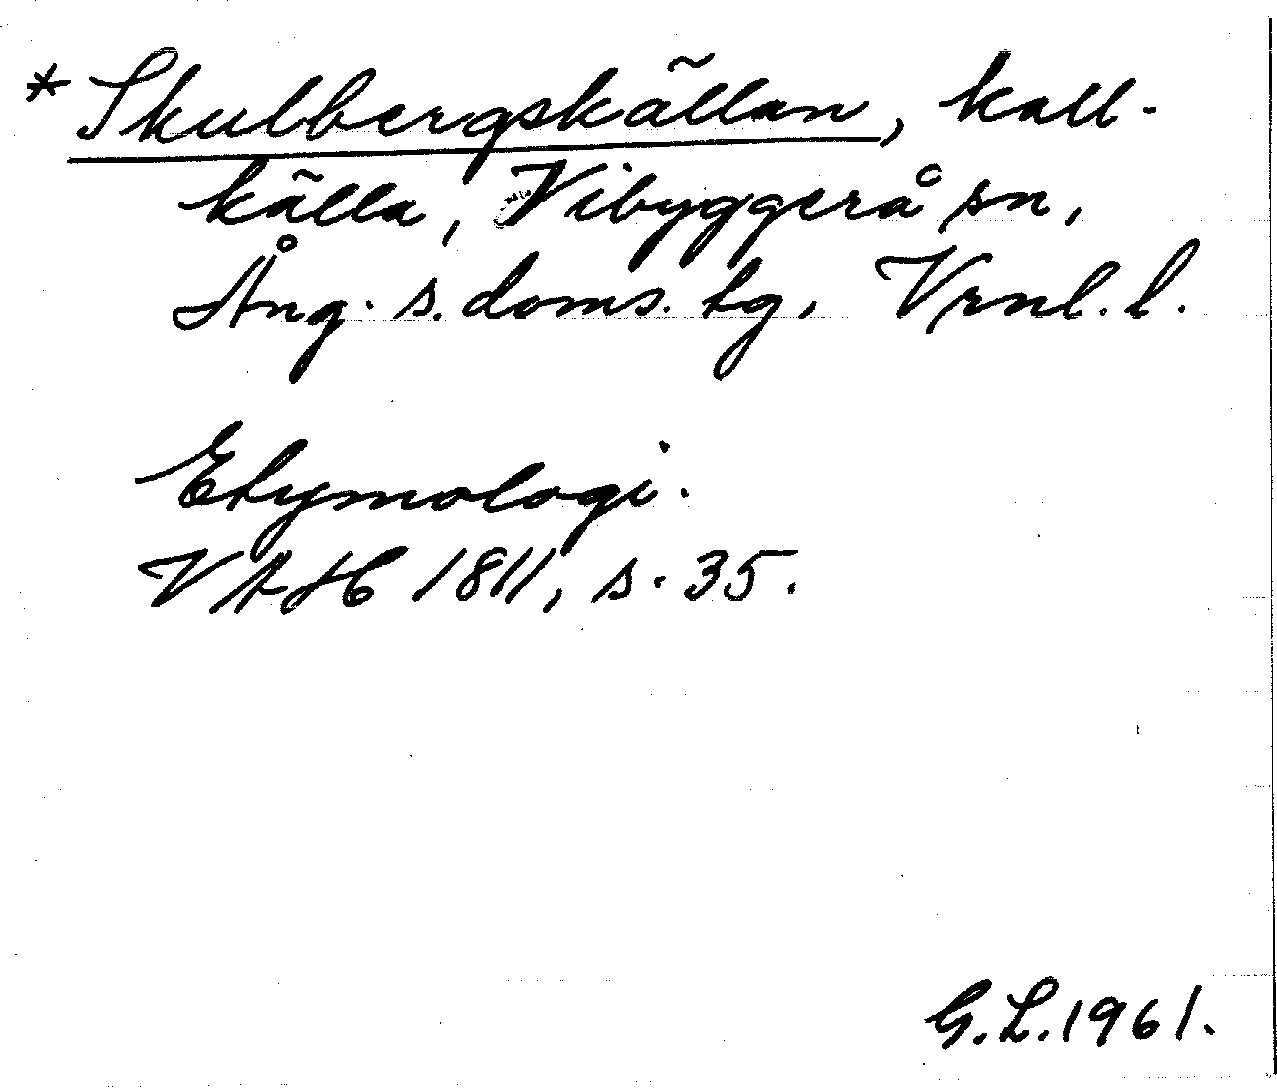 * Skulbergskällan, kall-
källa, Vibyggerå sn,
Ång. s. doms. tg, Vrnl. l.
Etymologi.
VAH 1811, s. 35.
G.L. 1961.